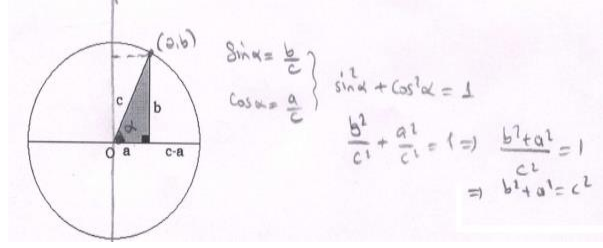 (a,b)
c
α
b
O
a
c-a
Sinα = b/c
Cosα = a/c
} sin²α + Cos²α = 1
b²/c² + a²/c² = 1 ⇒ b²+a²/c² = 1
⇒ b²+a² = c²